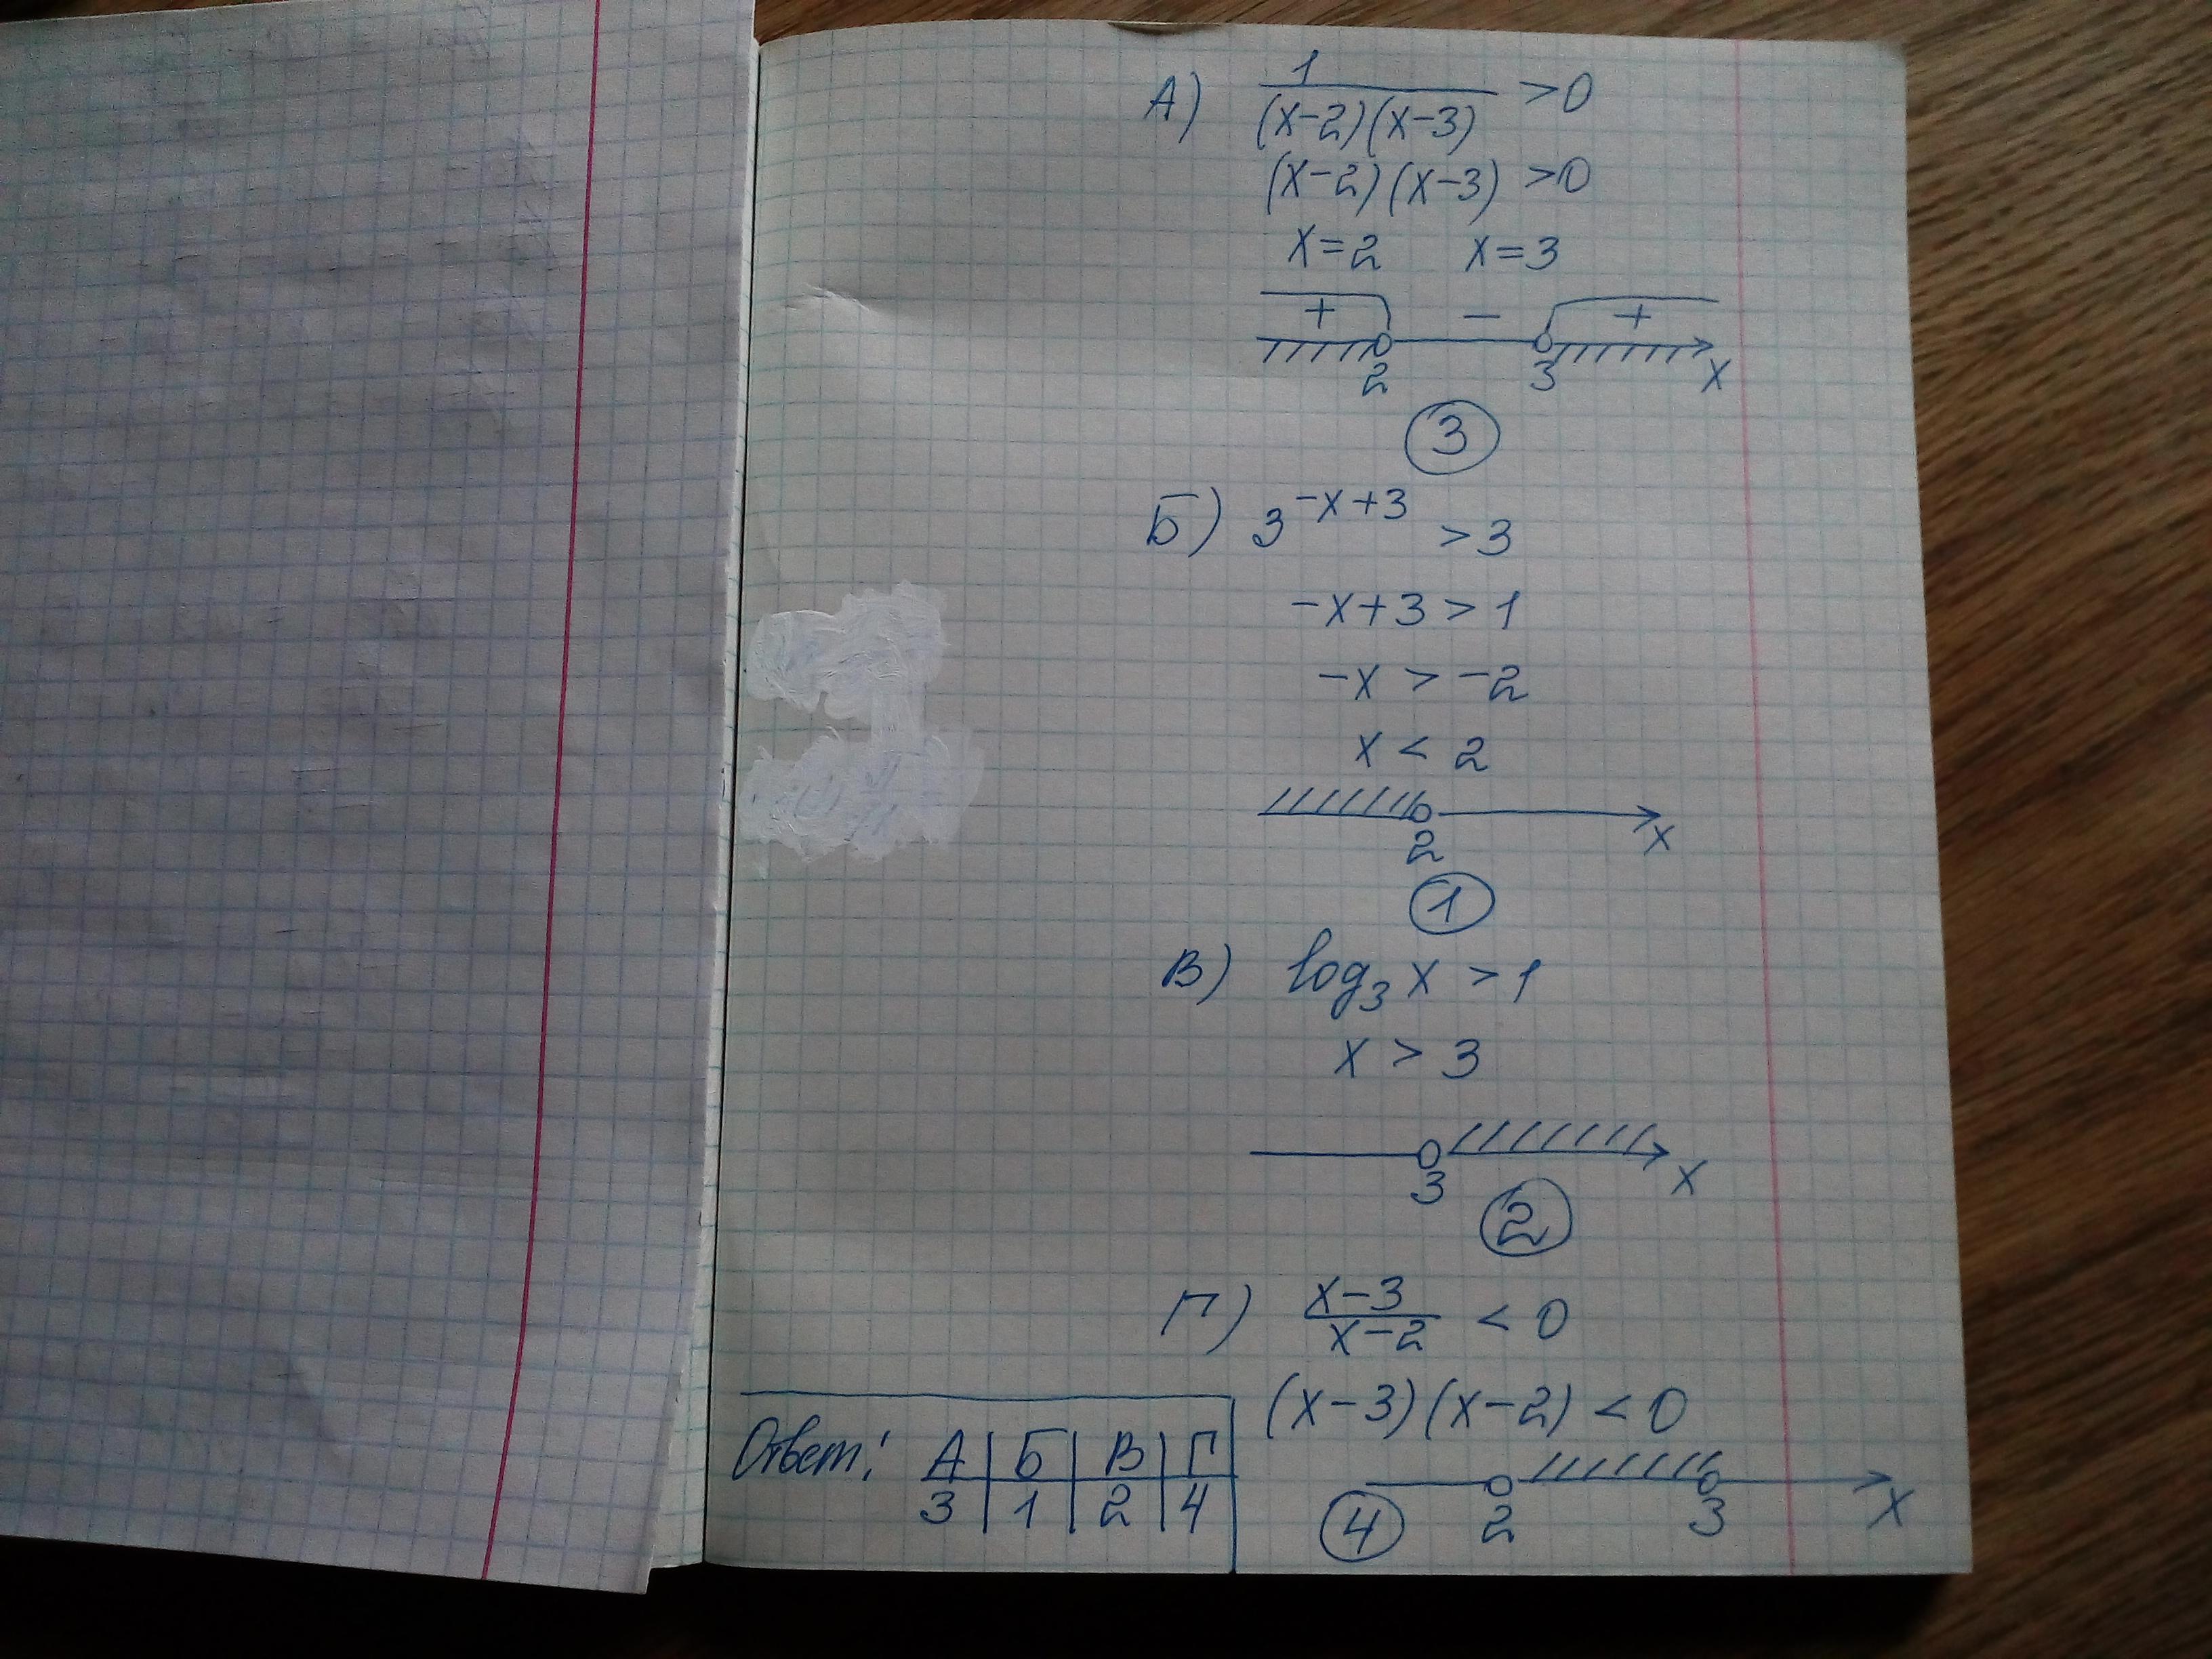 А) 1/((x-2)(x-3)) >0
(x-2)(x-3) >0
x=2 x=3
+ - +
2 3 x
3
Б) 3^(-x+3) >3
-x+3 > 1
-x > -2
x < 2
2 x
1
В) log₃ x > 1
x > 3
3 x
2
Г) (x-3)/(x-2) < 0
(x-3)(x-2) < 0
2 3 x
4
Ответ: А | Б | В | Г
3 | 1 | 2 | 4